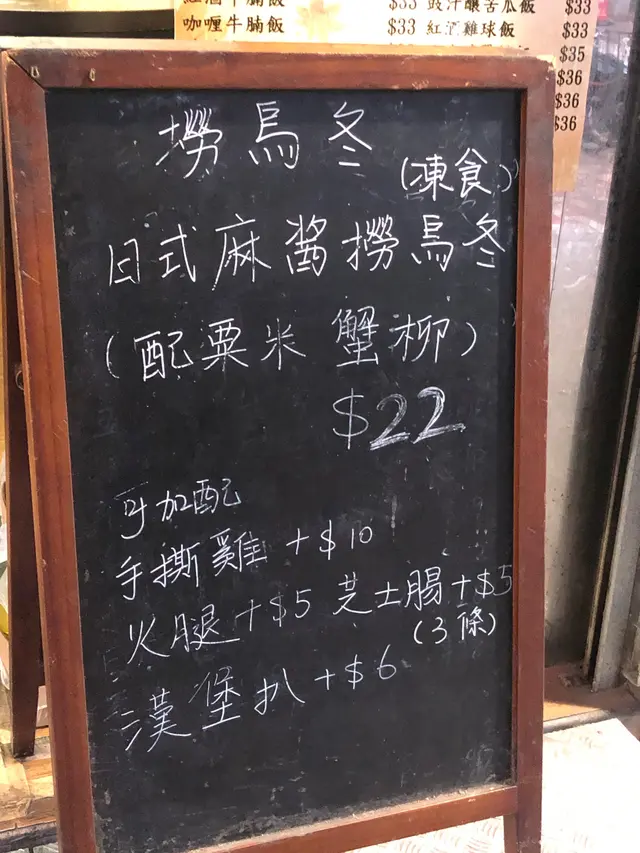 咖喱牛腩飯
$33 豉汁釀苦瓜飯 $33
$33 紅酒雞球飯 $33
$35
$36
$36
$36
撈烏冬
(凍食)
日式麻醬撈烏冬
(配粟米 蟹柳)
$22
可加配
手撕雞 +$10
火腿+$5 芝士腸+$5
(3條)
漢堡扒 +$6